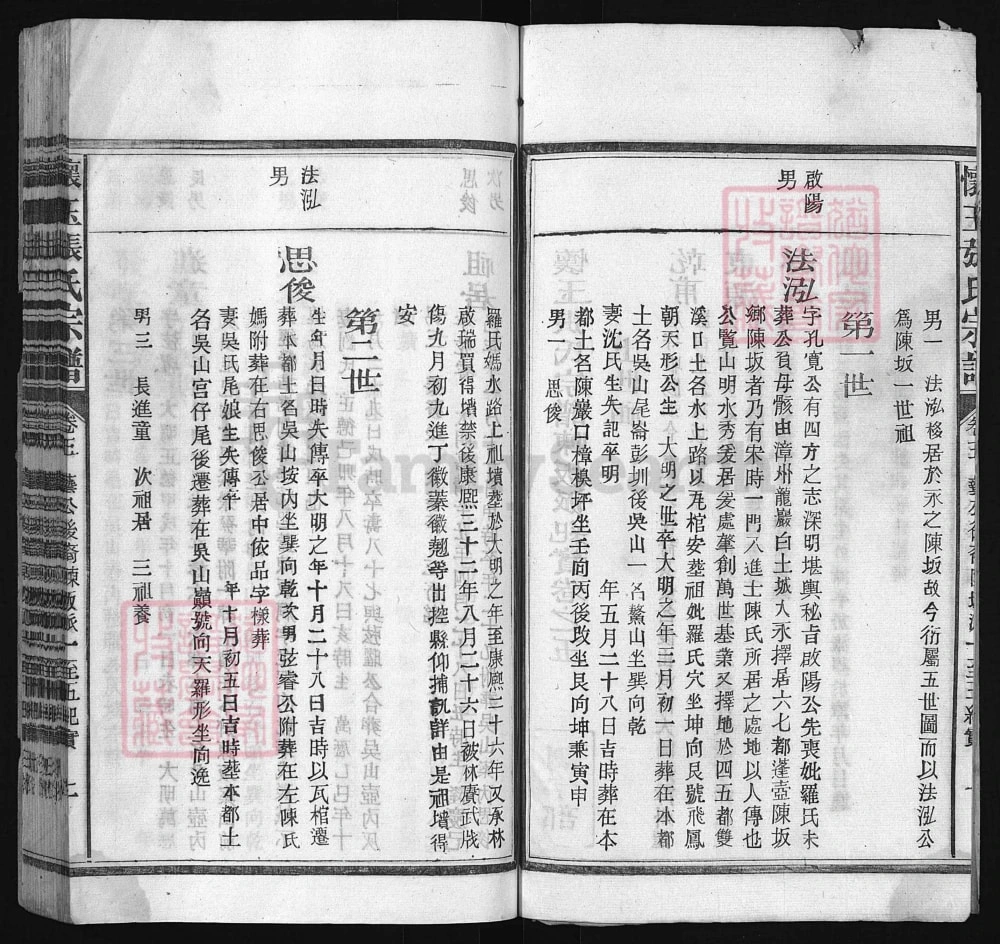 懷玉張氏宗譜
啟陽
男
男一　法泓移居於永之陳坂故今衍屬五世圖而以法泓公
爲陳坂一世祖
第一世
法泓
字孔寬公有四方之志深明堪輿秘吉啟陽公先喪妣羅氏未
葬公負母骸由漳州龍巖白土城入永擇居六七都蓬壺陳坂
鄉陳坂者乃有宋時一門八進士陳氏所居之處地以人傳也
公覽山明水秀爰居爰處肇創萬世基業又擇地於四五都雙
溪口土名水上路以瓦棺安塟祖妣羅氏穴坐坤向艮號飛鳳
朝天形公生　大明之世卒大明之年三月初一日葬在本都
土名吳山尾崙彭圳後吳山一　名鰲山坐巽向乾
妻沈氏生失記卒明　年五月二十八日吉時葬在本
都土名陳巖口樟模坪坐壬向丙後改坐艮向坤兼寅申
男一　思俊
羅氏媽水路上祖墳塟於大明之年至康熙三十六年又承林
啟瑞買得墳禁後康熙三十二年八月二十六日被林賡武戕
傷九月初九進丁徽蓁徽翹等出控縣仰捕訊詳由是祖墳得
安
第二世
法泓
男
思俊
生年月日時失傳卒大明之年十月二十八日吉時以瓦棺遷
葬本都土名吳山垵內坐巽向乾次男弦睿公附葬在左陳氏
媽附葬在右思俊公居中依品字樣葬
妻吳氏尾娘生失傳卒　年十月初五日吉時塟本都土
名吳山宮仔尾後遷葬在吳山巔號向天羅形坐向逸
男三　長進童　次祖居　三祖養
懷玉張氏宗譜
卷之　藝公後裔陳坂派一至五紀實　七